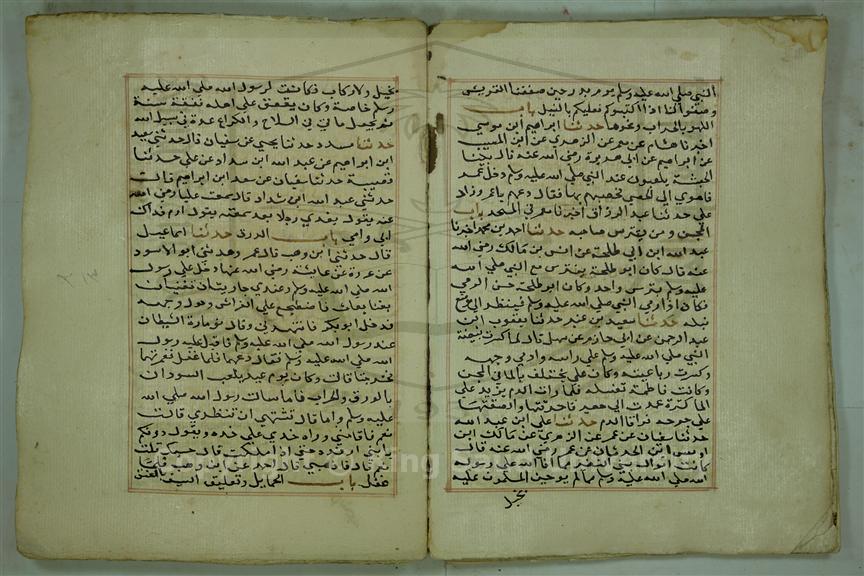 النبي صلى الله عليه وسلم يوم بدر حين صففنا القريش
وصفوا لنا اذا اكثبوكم فعليكم بالنبل باب
اللهو بالحراب ونحوها حدثنا ابراهيم ابن موسى
اخبرنا هشام عن معمر عن الزهري عن ابن المسيب
عن ابي هريرة رضي الله عنه قال بينا
الحبشة يلعبون عند النبي صلى الله عليه وسلم دخل عمر
فاهوى الى الحصى فحصبهم بها فقال دعهم يا عمر وزاد
علي حدثنا عبد الرزاق اخبرنا معمر في المسجد باب
المجن ومن يترس صاحبه حدثنا احمد بن محمد اخبرنا
عبد الله ابن ابي طلحة عن انس بن مالك رضي الله
عنه قال كان ابو طلحة يترس مع النبي صلى الله
عليه وسلم بترس واحد وكان ابو طلحة حسن الرمي
فكان اذا رمى النبي صلى الله عليه وسلم فينظر الى موضع
نبله حدثنا سعيد بن عفير حدثنا يعقوب ابن
عبد الرحمن عن ابي حازم عن سهل قال لما كسرت بيضة
النبي صلى الله عليه وسلم على راسه وادمي وجهه
وكسرت رباعيته وكان علي يختلف بالماء في المجن
وكانت فاطمة تغسله فلما رات الدم يزيد على
الماء كثرة عمدت الى حصير فاحرقتها والصقتها
على جرحه فرقا الدم حدثنا علي ابن عبد الله
حدثنا سفيان عن عمر عن الزهري عن مالك ابن
اوس ابن الحدثان عن عمر رضي الله عنه قال
كانت اموال بني النضير مما افاء الله على رسوله
صلى الله عليه وسلم مما لم يوجف المسلمون عليه
بخيل
بخيل ولا ركاب فكانت لرسول الله صلى الله عليه
وسلم خاصة وكان ينفق على اهله نفقة سنة
ثم يجعل ما بقي في السلاح والكراع عدة في سبيل الله
حدثنا مسدد حدثنا يحيى عن سفيان قال حدثني سعد
ابن ابراهيم عن عبد الله ابن شداد عن علي حدثنا
قبيصة حدثنا سفيان عن سعد ابن ابراهيم قال
حدثني عبد الله ابن شداد قال سمعت عليا رضي الله
عنه يقول يفدي رجلا بعد سعد سمعته يقول ارم فداك
ابي وامي باب الدرق حدثنا اسماعيل
قال حدثني ابن وهب قال عمر وحدثني ابو الاسود
عن عروة عن عائشة رضي الله عنها دخل علي رسول
الله صلى الله عليه وسلم وعندي جاريتان تغنيان
بغناء بعاث فاضطجع على الفراش وحول وجهه
فدخل ابو بكر فانتهرني وقال مزمارة الشيطان
عند رسول الله صلى الله عليه وسلم فاقبل عليه رسول
الله صلى الله عليه وسلم فقال دعهما فلما غفل غمزتهما
فخرجتا قالت وكان يوم عيد يلعب السودان
بالدرق والحراب فاما سالت رسول الله صلى الله
عليه وسلم واما قال تشتهين تنظري قالت
نعم فاقامني وراه خدي على خده ويقول دونكم
يا بني ارفدة حتى اذا مللت قال حسبك قلت
نعم قال فاذهبي قال احمد عن ابن وهب فلما
غفل باب الحمايل وتعليق السيف بالعنق